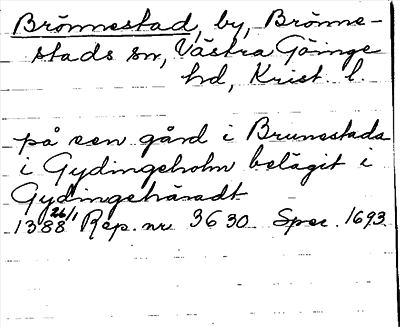 Brönnestad, by, Brönne-
stads sn, Västra Göinge
hd, Krist. l.
på een gård i Brunestada
i Gydingeholm belägit i
Gydingehäradt
1388 26/1 Rep. nr 3630 Spec. 1693